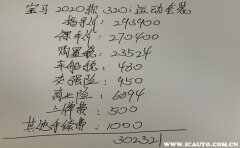 宝马2020款320i运动套装
指导价:293900
裸车价:270400
购置税:23524
车船税:480
交强险:950
商业险:6894
上牌费:500
其他手续费:1000
303232
WWW.ICAUTO.COM.CN